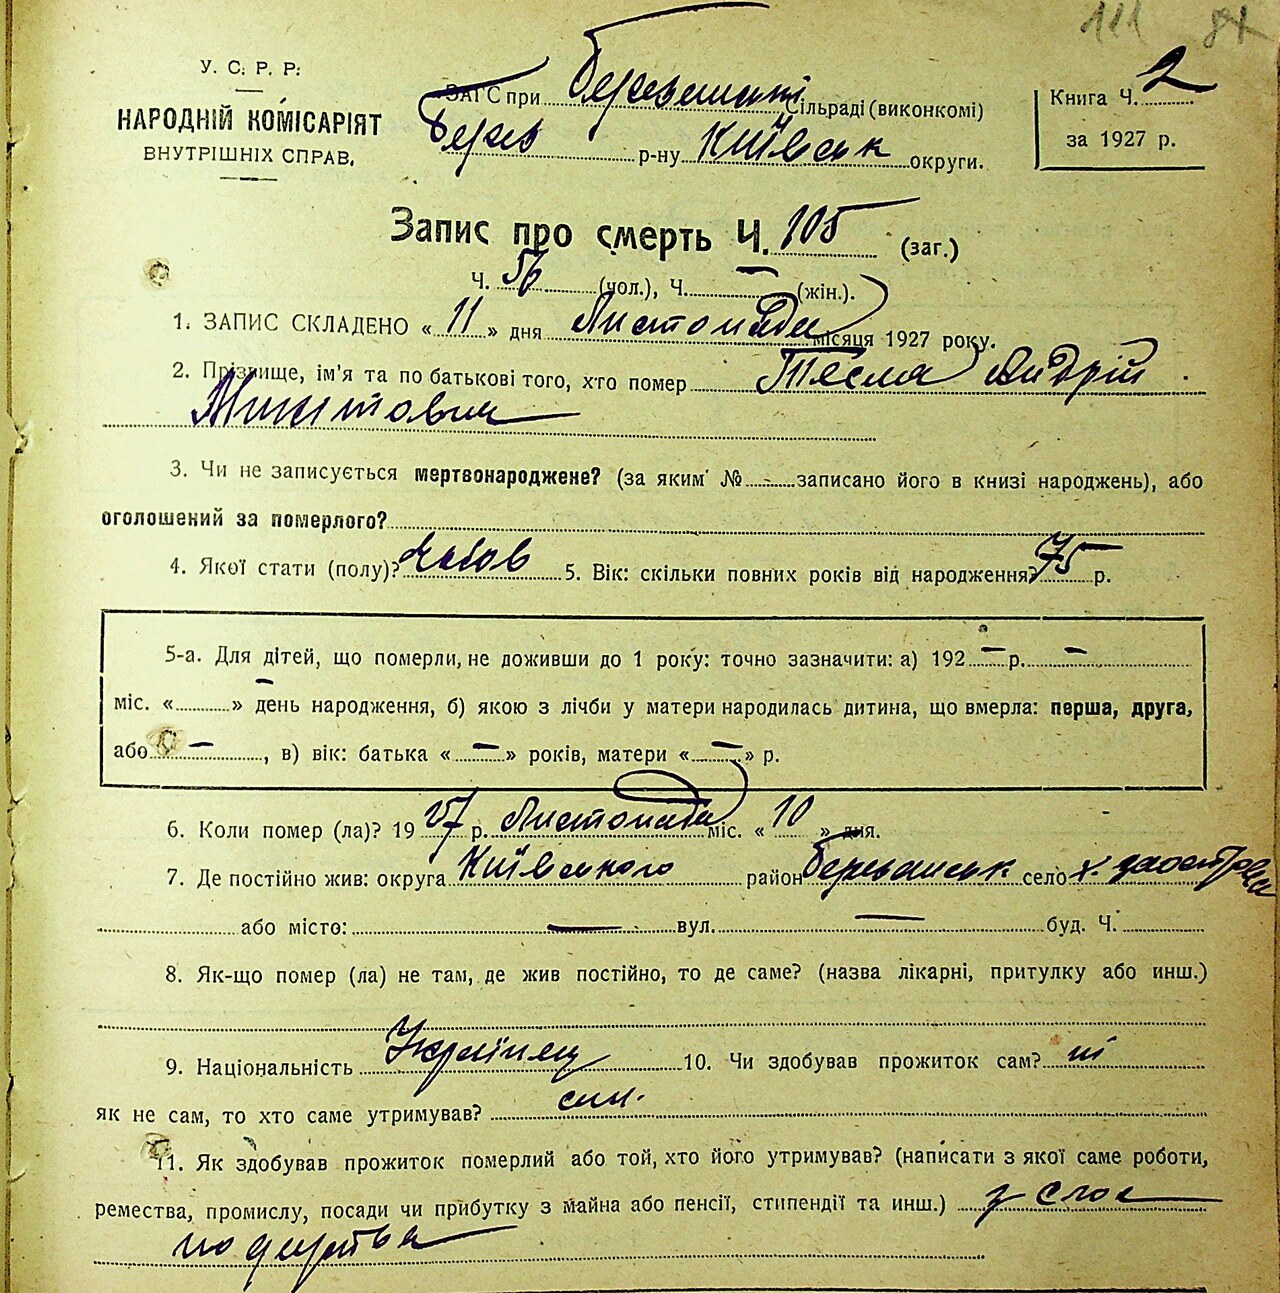 111 84
У. С. Р. Р.
НАРОДНІЙ КОМІСАРІЯТ
ВНУТРІШНІХ СПРАВ.
ЗАГС при Сільраді (виконкомі)
Берез р-ну Київськ округи.
Книга Ч. 2
за 1927 р.
Запис про смерть Ч. 105 (заг.)
Ч. 56 (чол.), Ч. — (жін.).
1. ЗАПИС СКЛАДЕНО « 11 » дня Листопада місяця 1927 року.
2. Прізвище, ім'я та по батькові того, хто помер Тесля Андрій
3. Чи не записується мертвонароджене? (за яким № записано його в книзі народжень), або
оголошений за померлого?
4. Якої стати (полу)? 5. Вік: скільки повних років від народження? 75 р.
5-а. Для дітей, що померли, не доживши до 1 року: точно зазначити: а) 192 — р. —
міс. « — » день народження, б) якою з лічби у матери народилась дитина, що вмерла: перша, друга,
або —, в) вік: батька « — » років, матери « — » р.
6. Коли помер (ла)? 19 27 р. Листопада міс. « 10 » дня.
7. Де постійно жив: округа Київського район село х.
або місто: — вул. — буд. Ч.
8. Як-що помер (ла) не там, де жив постійно, то де саме? (назва лікарні, притулку або инш.)
9. Національність Українец 10. Чи здобував прожиток сам? ні
як не сам, то хто саме утримував? син.
11. Як здобував прожиток померлий або той, хто його утримував? (написати з якої саме роботи,
ремества, промислу, посади чи прибутку з майна або пенсії, стипендії та инш.) з